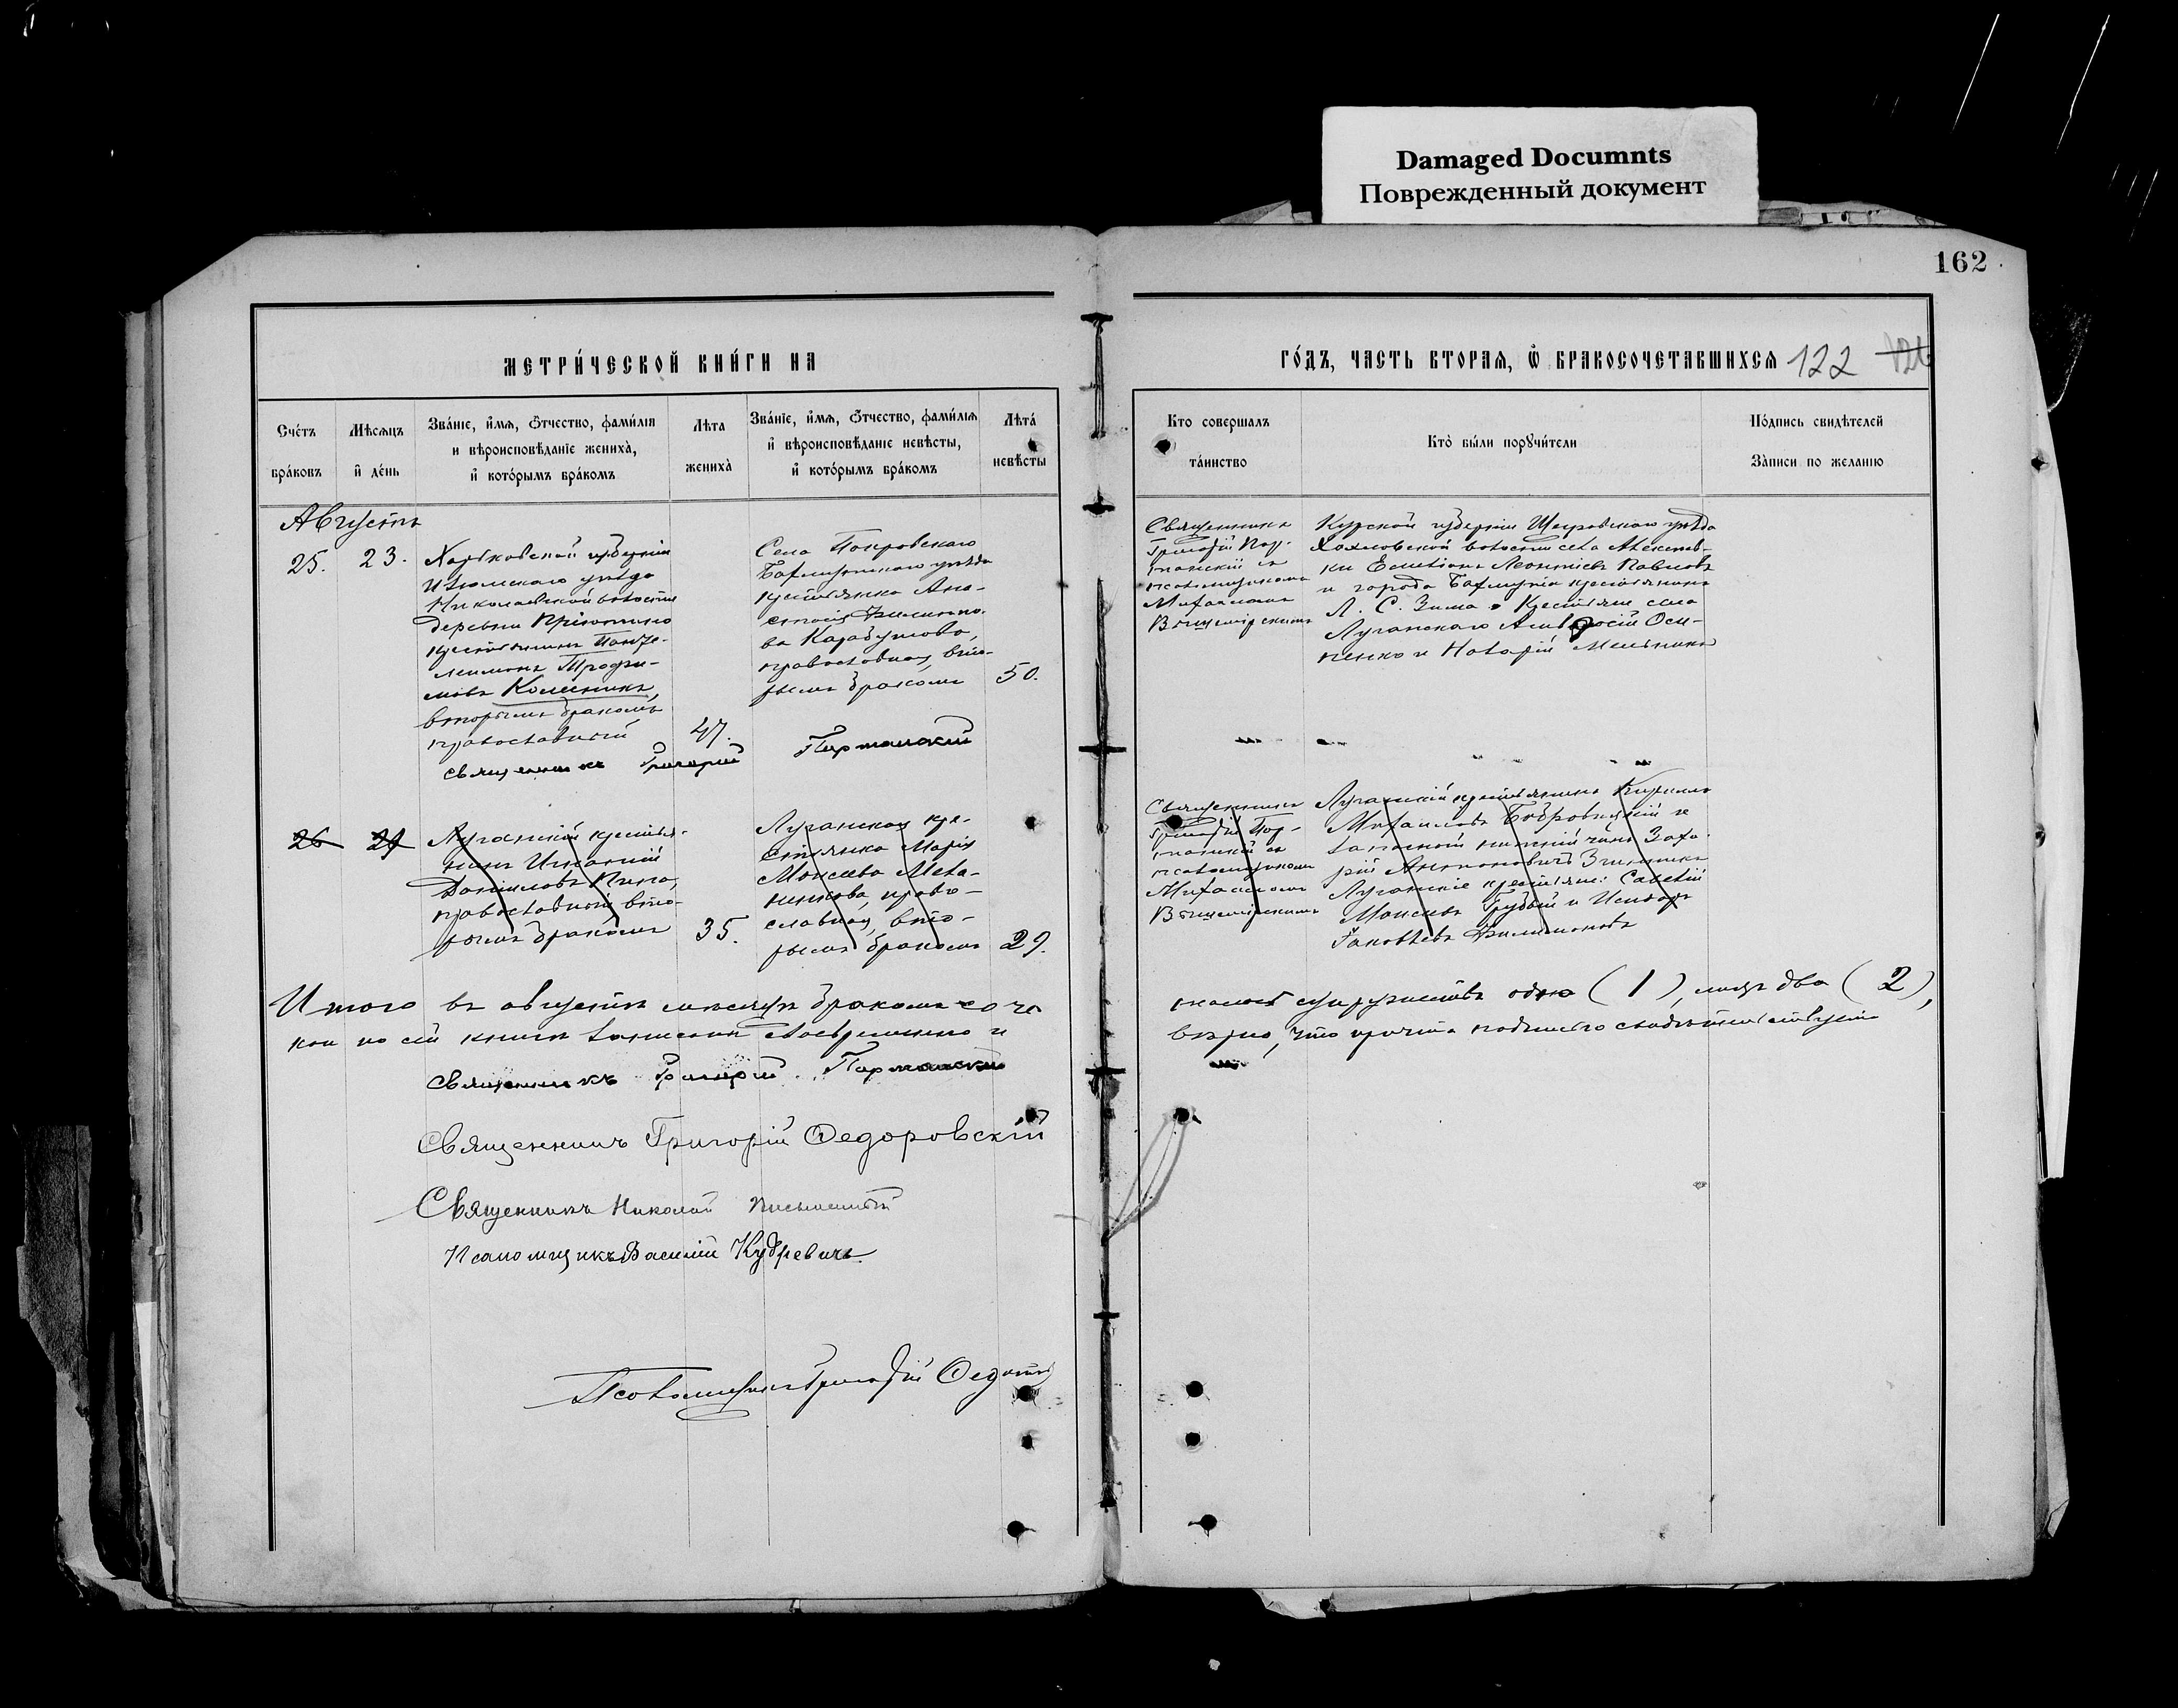 Damaged Documnts
Поврежденный документ
162
МЕТРИ́ЧЕСКОЙ КНИ́ГИ НА
ГО́ДЪ, ЧАСТЬ ВТОРАѦ, Ѡ҆ БРАКОСОЧЕТАВШИХСѦ 122 126
Сче́тъ бра́ковъ
Мѣ́сѧцъ и҆ де́нь
Зва́нїе, и҆́мѧ, Ѻ҆́тчество, фами́лїѧ
и вѣроисповѣ́данїе жениха̀,
и҆ кото́рымъ бра́комъ
Лѣта жениха̀
Зва́нїе, и҆́мѧ, Ѻ҆́тчество, фами́лїѧ
и҆ вѣроисповѣ́данїе невѣ́сты,
и҆ кото́рымъ бра́комъ
Лѣта́ невѣ́сты
Кто совершалъ
та́инство
Кто̀ бы́ли порꙋчи́тели
По́дпись свидѣ́телей
За̀писи по желанїю
Августъ
25.
23.
Харьковской губерніи
Изюмскаго уѣзда
Николаевской волости
деревни
крестьянинъ Панте-
леимонъ Трофи-
мовъ Колесникъ,
вторымъ бракомъ
православный
47.
Села Покровскаго
Бахмутскаго уѣзда
крестьянка Ана-
стасія Филиппо-
ва
православная, вто-
рымъ бракомъ
50.
Священникъ Григорій Портанскій
Священникъ
Григорій Пор-
танскій съ
псаломщикомъ
Михаиломъ
Курской губерніи Щигровскаго уѣзда
волости села Алексѣев-
ки Леонтіевъ Павловъ
и города Бахмута крестьянинъ
Л. С. Зима. Крестьяне села
Луганскаго Амвросій Оси-
пенко и Мельникъ
26
27
Луганскій крестья-
нинъ Игнатій
Даниловъ
православный вто-
рымъ бракомъ
35.
Луганская кре-
стьянка Марія
Моисеева
православная, вто-
рымъ бракомъ
29.
Священникъ
Григорій Пор-
танскій съ
псаломщикомъ
Михаиломъ
Луганскій крестьянинъ Кирилло
Михаиловъ Бобровицкій и
запасной нижній чинъ Заха-
рій Антоновичъ
Луганскіе крестьяне: Савелій
Моисеевъ Грубый и
Яковлевъ Филимоновъ
Итого въ августѣ мѣсяцѣ бракомъ соче
супружествъ одно (1), лицъ два (2),
по сей книгѣ записаны своевременно и
вѣрно, что причтъ подписью свидѣтельствуетъ
Священникъ Григорій Портанскій
Священникъ Григорій Федоровскій
Священникъ Николай
Псаломщикъ Василій Кудревичъ
Псаломщикъ Григорій